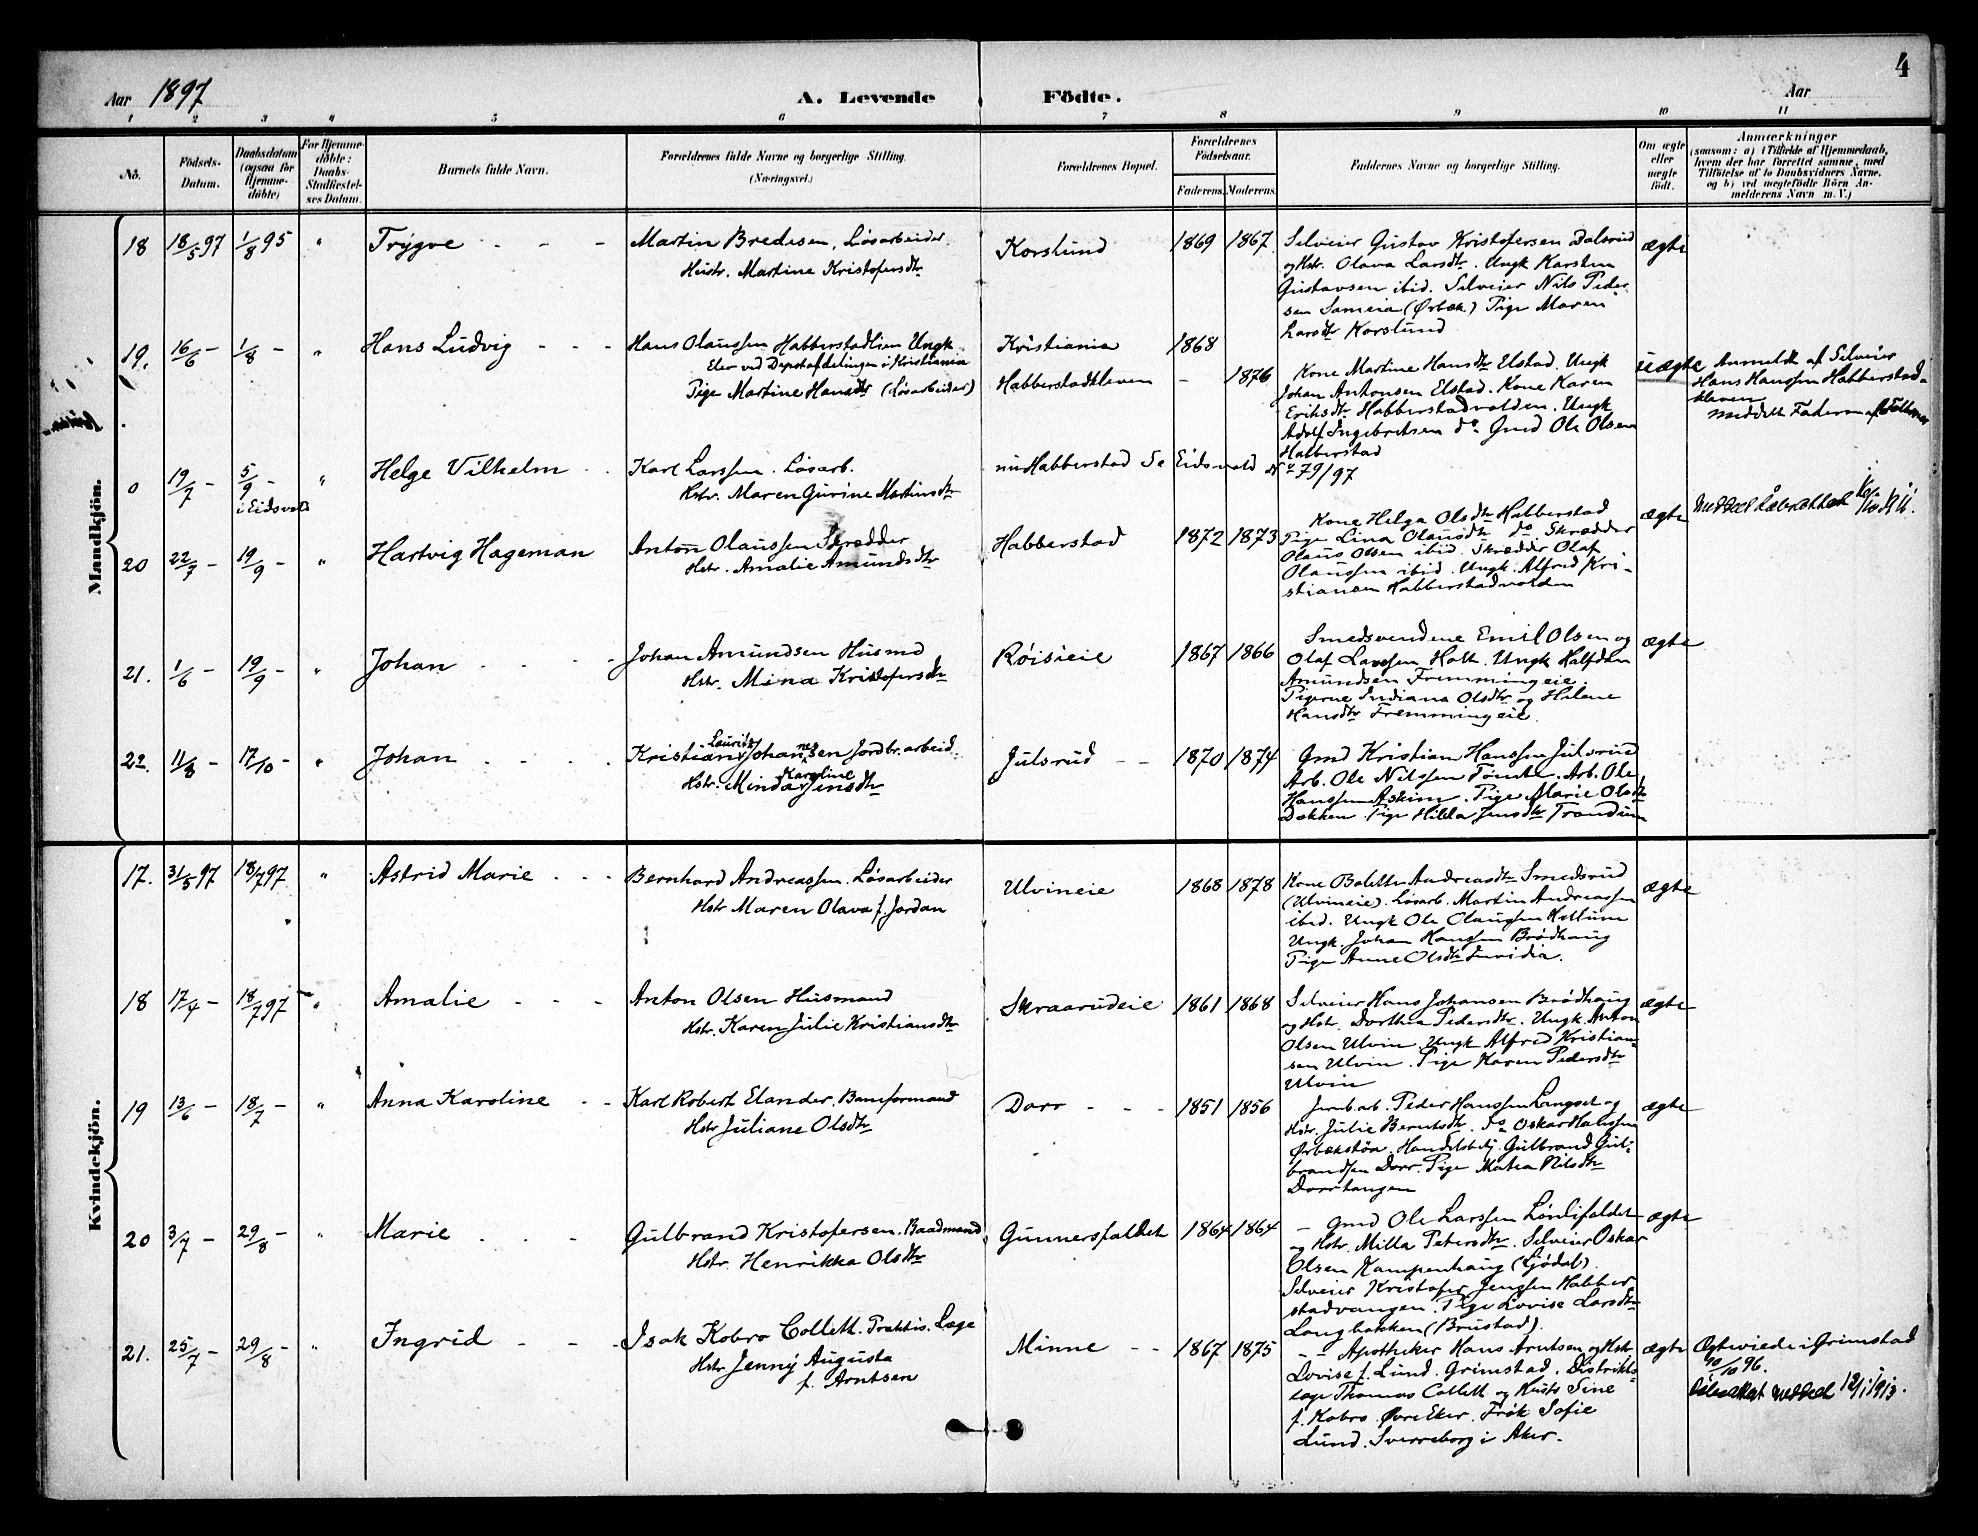 4
Aar 1897
A. Levende Födte.
Aar
1 2 3 4 5 6 7 8 9 10 11
No.
Födsels-Datum.
Daabsdatum (ogsaa for Hjemmedöbte)
For Hjemmedöbte: Daabs-Stadfæstelses Datum.
Barnets fulde Navn.
Forældrenes fulde Navne og borgerlige Stilling. (Næringsvei.)
Forældrenes Bopæl.
Forældrenes Födselsaar.
Faderens. Moderens.
Faddernes Navne og borgerlige Stilling.
Om ægte eller uægte födt.
Anmærkninger
(saasom: a) i Tilfælde af Hjemmedaab,
hvem der har forrettet samme, med
Tilföielse af to Daabsvidners Navne,
og b) ved uægtefödte Börn An-
melderens Navn m. V.)
Mandkjön.
18 18/5 97 1/8 95 " Trygve - - -
Martin Bredesen, Løsarbeider
Hustr. Martine Kristofersdtr
Korslund 1869 1867
Selveier Gustav Kristofersen Dalsrud
og Hstr. Olava Larsdtr. Ungk Karsten
Gustavsen ibid. Selveier Nils Peder
sen Sameia (Ørbæk) Pige Maren
Larsdtr Korslund
ægte
19. 16/6 - 1/8 - " Hans Ludvig - - -
Hans Olaussen Habberstadlien Ungk
Elev ved Depotafdelingen i Kristiania
Pige Martine Hansdtr (Løsarbeider)
Kristiania 1868
Habberstadkleven - 1876
Kone Martine Hansdtr Elstad. Ungk
Johan Antonsen Elstad. Kone Karen
Eriksdtr Habberstadvolden. Ungk
Adolf Ingebretsen do. Gmd Ole Olsen
Halberstad
uægte
Anmeldt af Selveier
Hans Hanssen Habberstad-
kleven
meddelt Faderen
0 19/7 - 5/9 - i Eidsvold " Helge Vilhelm - -
Karl Larssen. Løsarb.
Hstr. Maren Gurine Martinsdtr
Habberstad Se Eidsvold No 79/97
20 22/7 - 19/9 - " Hartvig Hageman
Anton Olaussen Skrædder
Hstr. Amalie Amundsdtr
Habberstad 1872 1873
Kone Helga Olsdtr Habberstad
Pige Lina Olausdtr do. Skrædder
Olaus Olsen ibid. Skrædder Olaf
Olaussen ibid. Ungk. Alfred Kri-
stiansen Habberstadvolden
ægte
21. 1/6 - 19/9 - " Johan - - - -
Johan Amundsen Husmd
Hstr. Mina Kristofersdtr
Røisieie 1867 1866
Smedsvendene Emil Olsen og
Olaf Larssen Holt. Ungk Halfdan
Amundsen Fremmingeie.
Pigerne Indiana Olsdtr og Helene
Hansdtr Fremmingeie.
ægte
22. 11/8 - 17/10 - " Johan - - - -
Kristian Laurits Johannessen Jordbr.arbeid.
Hstr. Minda Karoline Jensdtr
Julsrud - - 1870 1874
Gmd Kristian Hanssen Julsrud
Arb. Ole Nilssen Tømte. Arb. Ole
Hanssen Askim. Pige Marie Olsdtr
Dokken. Pige Hilda Jensdtr Trandum
Kvindekjön.
17. 31/5 97 18/7 97 " Astrid Marie - - -
Bernhard Andreassen. Løsarbeider
Hstr Maren Olava f. Jordan
Ulvineie 1868 1878
Kone Bolette Andreasdtr Smedsrud
(Ulvineie). Løsarb. Martin Andreassen
ibid. Ungk Ole Olaussen Hellum
Ungk. Johan Hanssen Brødhaug
Pige Anne Olsdtr
ægte
18 17/4 - 18/7 97 " Amalie - - -
Anton Olsen Husmand
Hstr. Karen Julie Kristiansdtr
Skraarudeie 1861 1868
Selveier Hans Johansen Brødhaug
og Hstr. Dorthea Pedersdtr. Ungk. Anton
Olsen Ulvin. Ungk Alfred Kristian-
sen Ulvin. Pige Karen Pedersdtr
Ulvin
ægte
19 13/6 - 18/7 - " Anna Karoline - -
Karl Robert Elander, Baneformand
Hstr Juliane Olsdtr
Dorr - - - 1851 1856
Jernb.arb. Peder Hanssen Langset og
Hstr. Julie Berntsdtr. do Oskar Hanssen
Ørbækstøa. Handelsbetj. Gulbrand Gul-
brandsen Dorr. Pige Matea Nilsdtr
Dorrtangen
ægte
20 3/7 - 29/8 - " Marie - - -
Gulbrand Kristofersen. Baadmand
Hstr. Henrikka Olsdtr
Gunnersfaldet 1864 1864
- Gmd Ole Larssen Løndifaldet
og Hstr. Milla Petersdtr. Selveier Oskar
Olsen Kampenhaug (Gjødal).
Selveier Kristofer Jenssen Habber
stadvangen. Pige Lovise Larsdtr
Langbakken (Brustad).
ægte
21. 25/7 - 29/8 - " Ingrid - - -
Isak Kobro Collett. Praktis. Læge
Hstr. Jenny Augusta
f. Arntsen
Minne - - 1867 1875
- Apotheker Hans Arntsen og Hstr
Lovise f. Lund. Grimstad. Distrikts-
læge Thomas Collett og Hustr Sine
f. Kobro. Øvre Eker. Frøk Sofie
Lund. Sverreborg i Aker.
ægte
Ægteviede i Grimstad
10/10 96.
Døbeattest meddelt 12/1 1913.